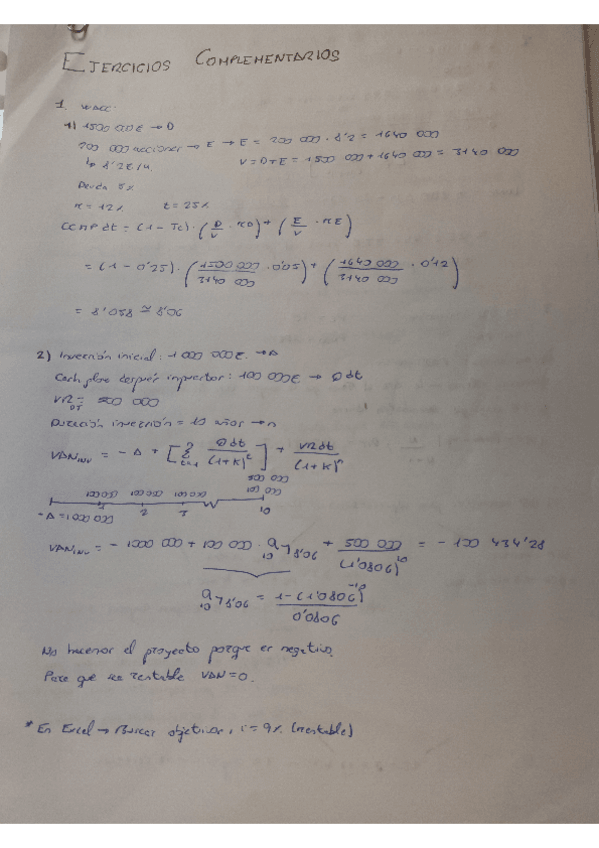 EJERCICIOS COMPLEMENTARIOS
1. WACC.
1) 1500 000€ → D
200 000 acciones → E → E = 200 000 · 8'2 = 1640 000
↳ 8'2€/u. V = D+E = 1500 000 + 1640 000 = 3140 000
Deuda 5%
re = 12% t = 25%
CCMP dt = (1 - Tc) · (D/V · rD) + (E/V · rE)
= (1 - 0'25) · (1500 000/3140 000 · 0'05) + (1640 000/3140 000 · 0'12)
= 8'058 ≅ 8'06
2) Inversión inicial: 1 000 000€. → A
Cash flow después impuestos: 100 000€ → Q dt
VR DT = 500 000
Duración inversión = 10 años → n
VAN INV = - A + [Σ Q dt/(1+K)^t] + VRdt/(1+K)^n
500 000
100 000 100 000 100 000 100 000
2 3 10
-A = 1000 000
VAN INV = - 1000 000 + 100 000 · a 10 7 8'06 + 500 000/(1'0806)^10 = - 100 434'28
a 10 7 8'06 = 1-(1'0806)^-10/0'0806
No hacemos el proyecto porque es negativo.
Para que sea rentable VAN = 0.
* En Excel → Buscar objetivos, i = 9% (rentable)